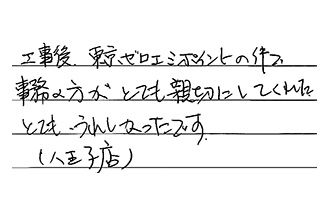 工事後、東京ゼロエミポイントの件で
事務の方がとても親切にしてくれた
とてもうれしかったです。
(八王子店)